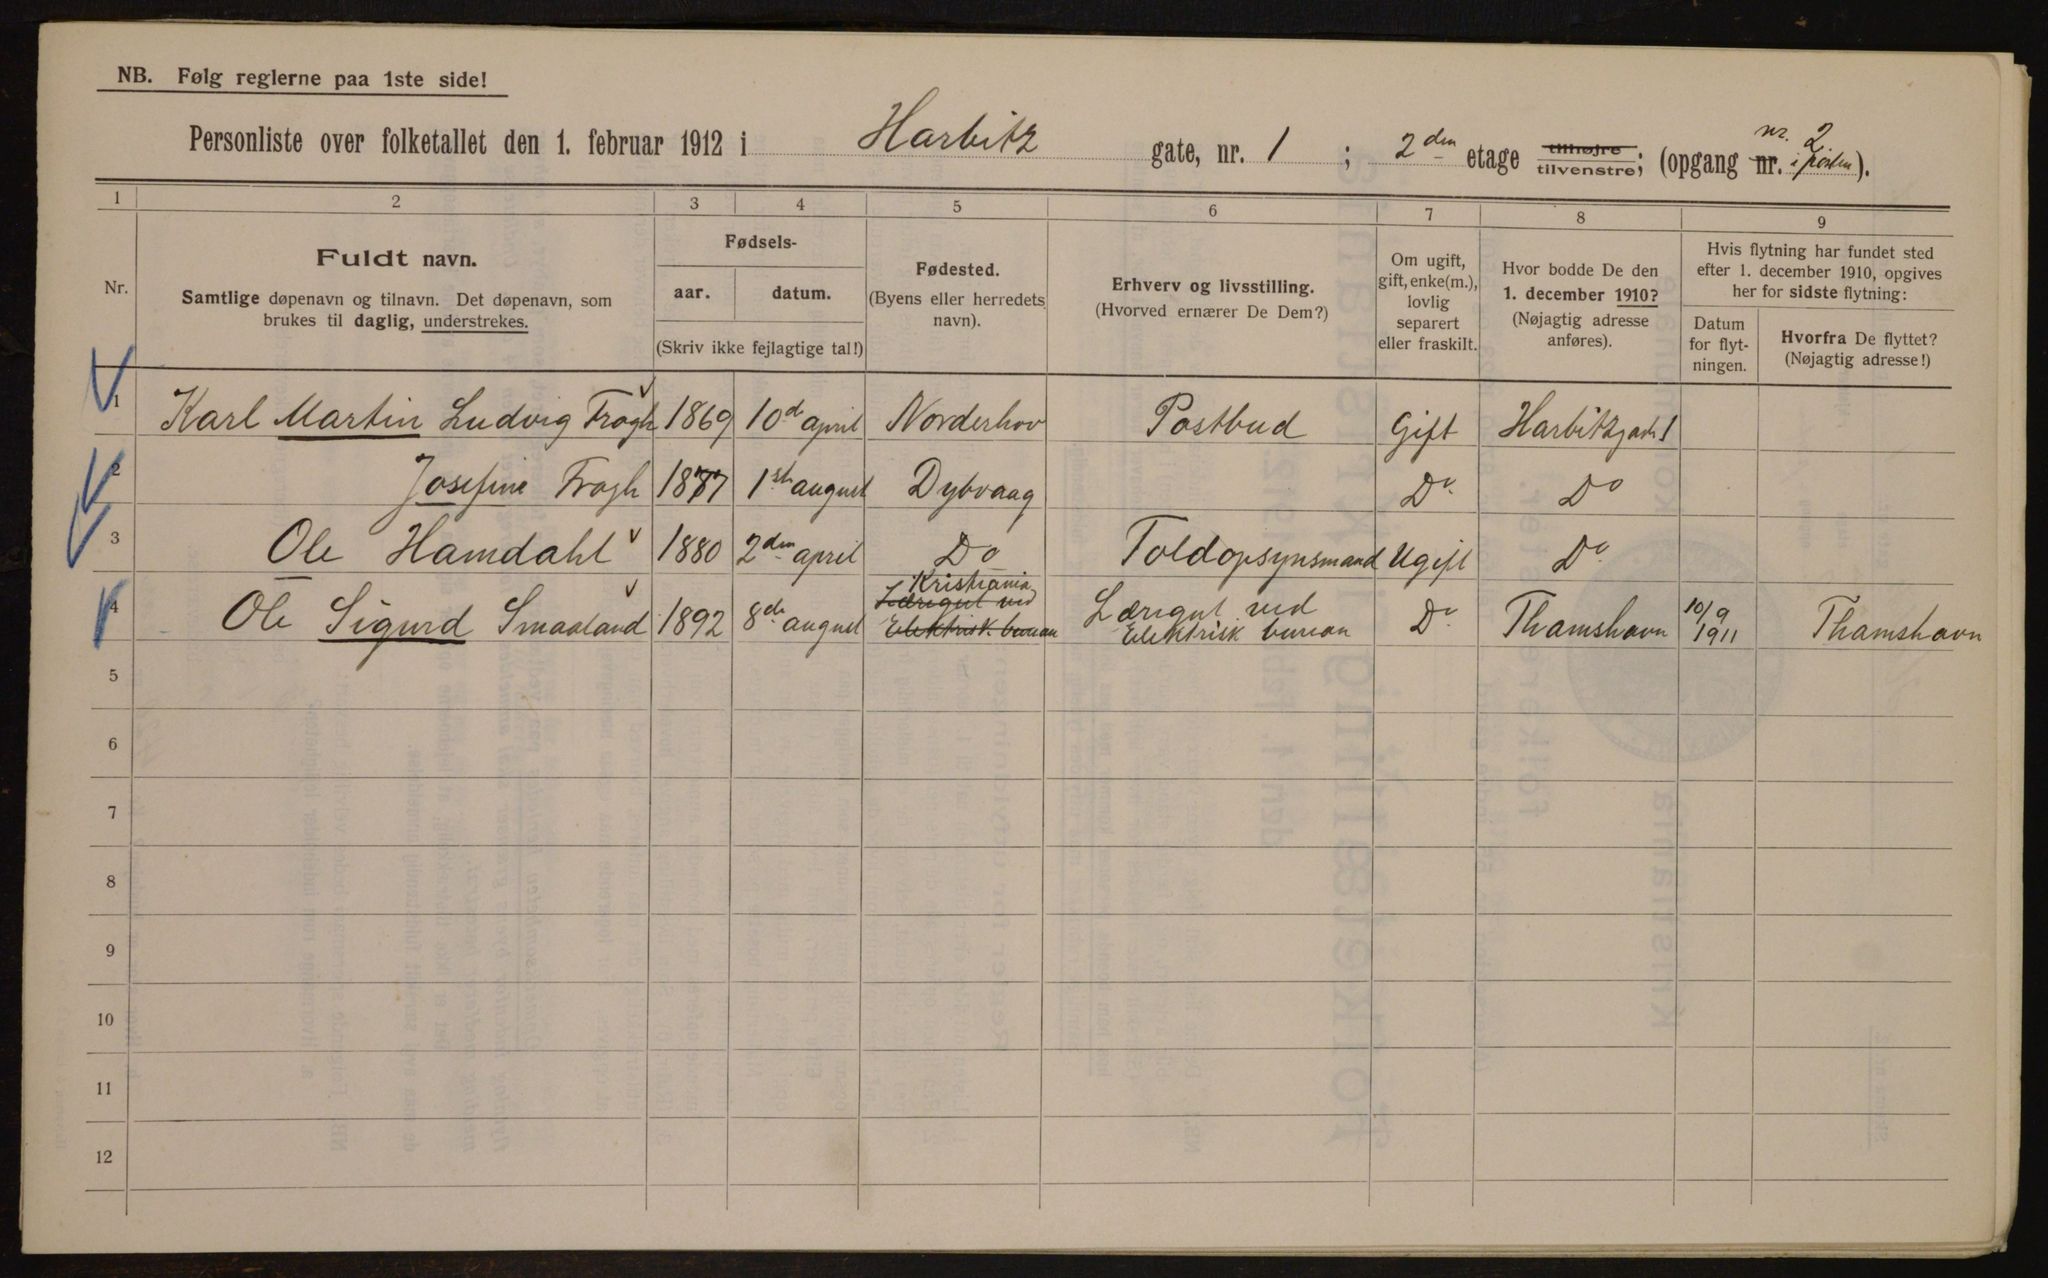 NB. Følg reglerne paa 1ste side!
Personliste over folketallet den 1. februar 1912 i Harbitz gate, nr. 1 ; 2den etage tilhøjre tilvenstre; (opgang nr. nr. 2 i porten).
1 2 3 4 5 6 7 8 9
Nr.
Fuldt navn.
Samtlige døpenavn og tilnavn. Det døpenavn, som
brukes til daglig, understrekes.
Fødsels-
aar. datum.
(Skriv ikke fejlagtige tal!)
Fødested.
(Byens eller herredets
navn).
Erhverv og livsstilling.
(Hvorved ernærer De Dem?)
Om ugift,
gift, enke(m.),
lovlig
separert
eller fraskilt.
Hvor bodde De den
1. december 1910?
(Nøjagtig adresse
anføres).
Hvis flytning har fundet sted
efter 1. december 1910, opgives
her for sidste flytning:
Datum
for flyt-
ningen.
Hvorfra De flyttet?
(Nøjagtig adresse!)
1 Karl Martin Ludvig Frogh 1869 10de april Norderhov Postbud Gift Harbitzgade 1
2 Josefine Frogh 1877 1ste august Dybvaag Do Do
3 Ole Hamdahl 1880 2den april Do Toldopsynsmand Ugift Do
4 Ole Sigurd Smaaland 1892 8de august Kristiania Læregut ved Elektrisk bureau Læregut ved Elektrisk bureau Do Thamshavn 10/9 1911 Thamshavn
5
6
7
8
9
10
11
12